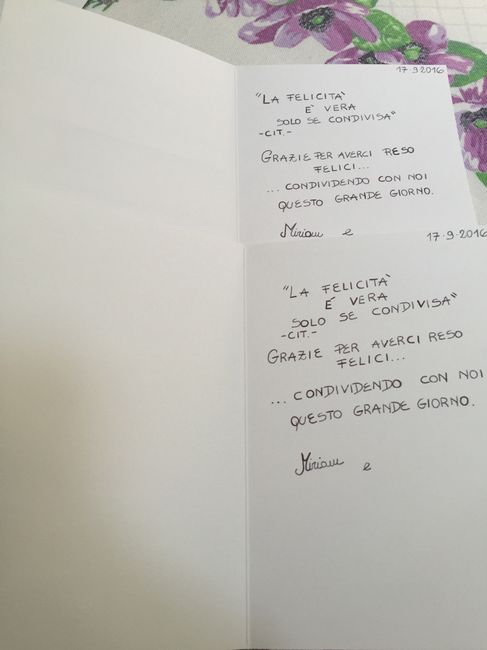 17-9-2016
"LA FELICITA'
E' VERA
SOLO SE CONDIVISA"
-CIT.-
GRAZIE PER AVERCI RESO
FELICI...
... CONDIVIDENDO CON NOI
QUESTO GRANDE GIORNO.
Miriam e
17-9-2016
"LA FELICITA'
E' VERA
SOLO SE CONDIVISA"
-CIT.-
GRAZIE PER AVERCI RESO
FELICI...
... CONDIVIDENDO CON NOI
QUESTO GRANDE GIORNO.
Miriam e